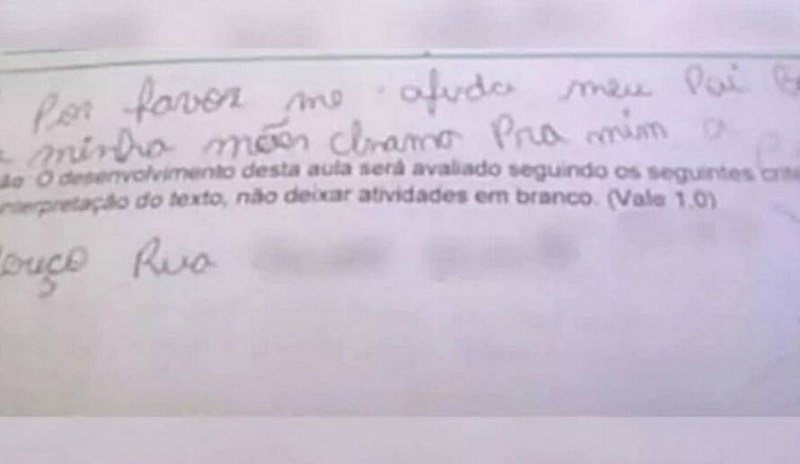 Por favor me ajuda meu Pai
minha mãe chramo Pra mim a
O desenvolvimento desta aula será avaliado seguindo os seguintes
interpretação do texto, não deixar atividades em branco. (Vale 1.0)
Rua